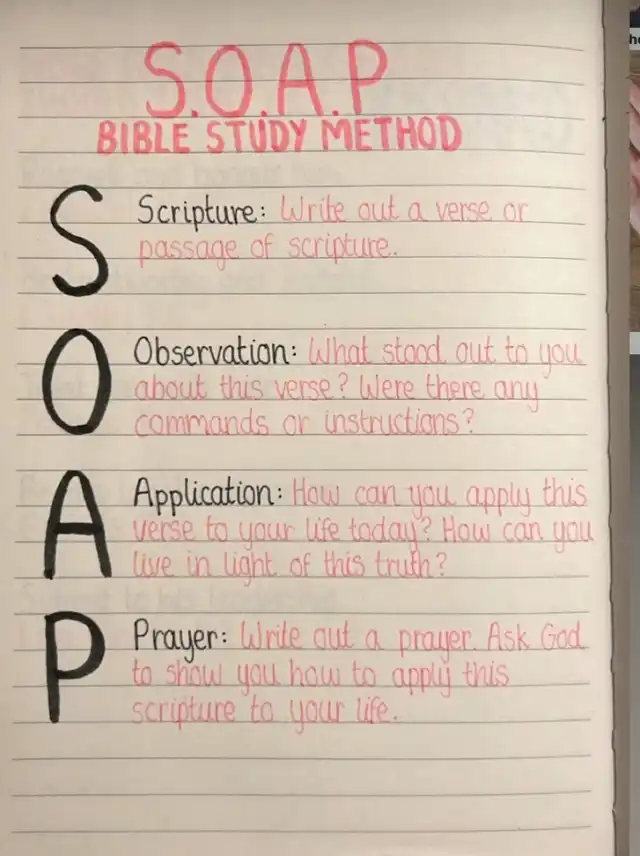 S.O.A.P
BIBLE STUDY METHOD
S
Scripture: Write out a verse or
passage of scripture.
O
Observation: What stood out to you
about this verse? Were there any
commands or instructions?
A
Application: How can you apply this
verse to your life today? How can you
live in light of this truth?
P
Prayer: Write out a prayer. Ask God
to show you how to apply this
scripture to your life.